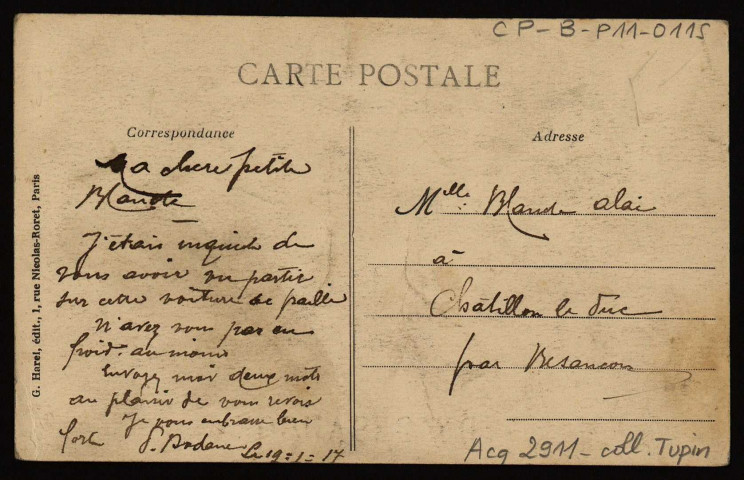 CP-B-P11-0115
CARTE POSTALE
Correspondance
Adresse
G. Harel, édit., 1, rue Nicolas-Roret, Paris
Ma chere petite
Blanche
J'étais inquiete de
vous avoir vu partir
sur cette voiture de paille
N'avez vous pas eu
froid. au moins
Envoyez moi deux mots
au plaisir de vous revoir
Je vous embrasse bien
fort
Le 19-1-17
Mlle: Blanche
à
Châtillon le Duc
par Besancon
Acq 2911-coll. Tupin